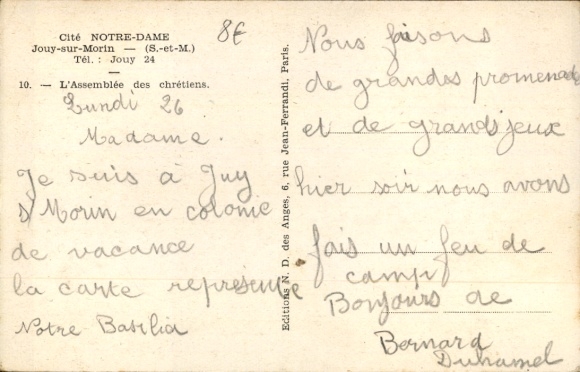 Cité NOTRE-DAME
Jouy-sur-Morin — (S.-et-M.)
Tél. : Jouy 24
10. — L'Assemblée des chrétiens.
8€
Lundi 26
Madame.
Je suis à Guy
s/Morin en colonie
de vacance
la carte represente
Notre Basilia
Editions N. D. des Anges, 6, rue Jean-Ferrandi, Paris.
Nous faisons
de grandes promenade
et de grands jeux
hier soir nous avons
fais un feu de
camp
Bonjours de
Bernard
Duhamel